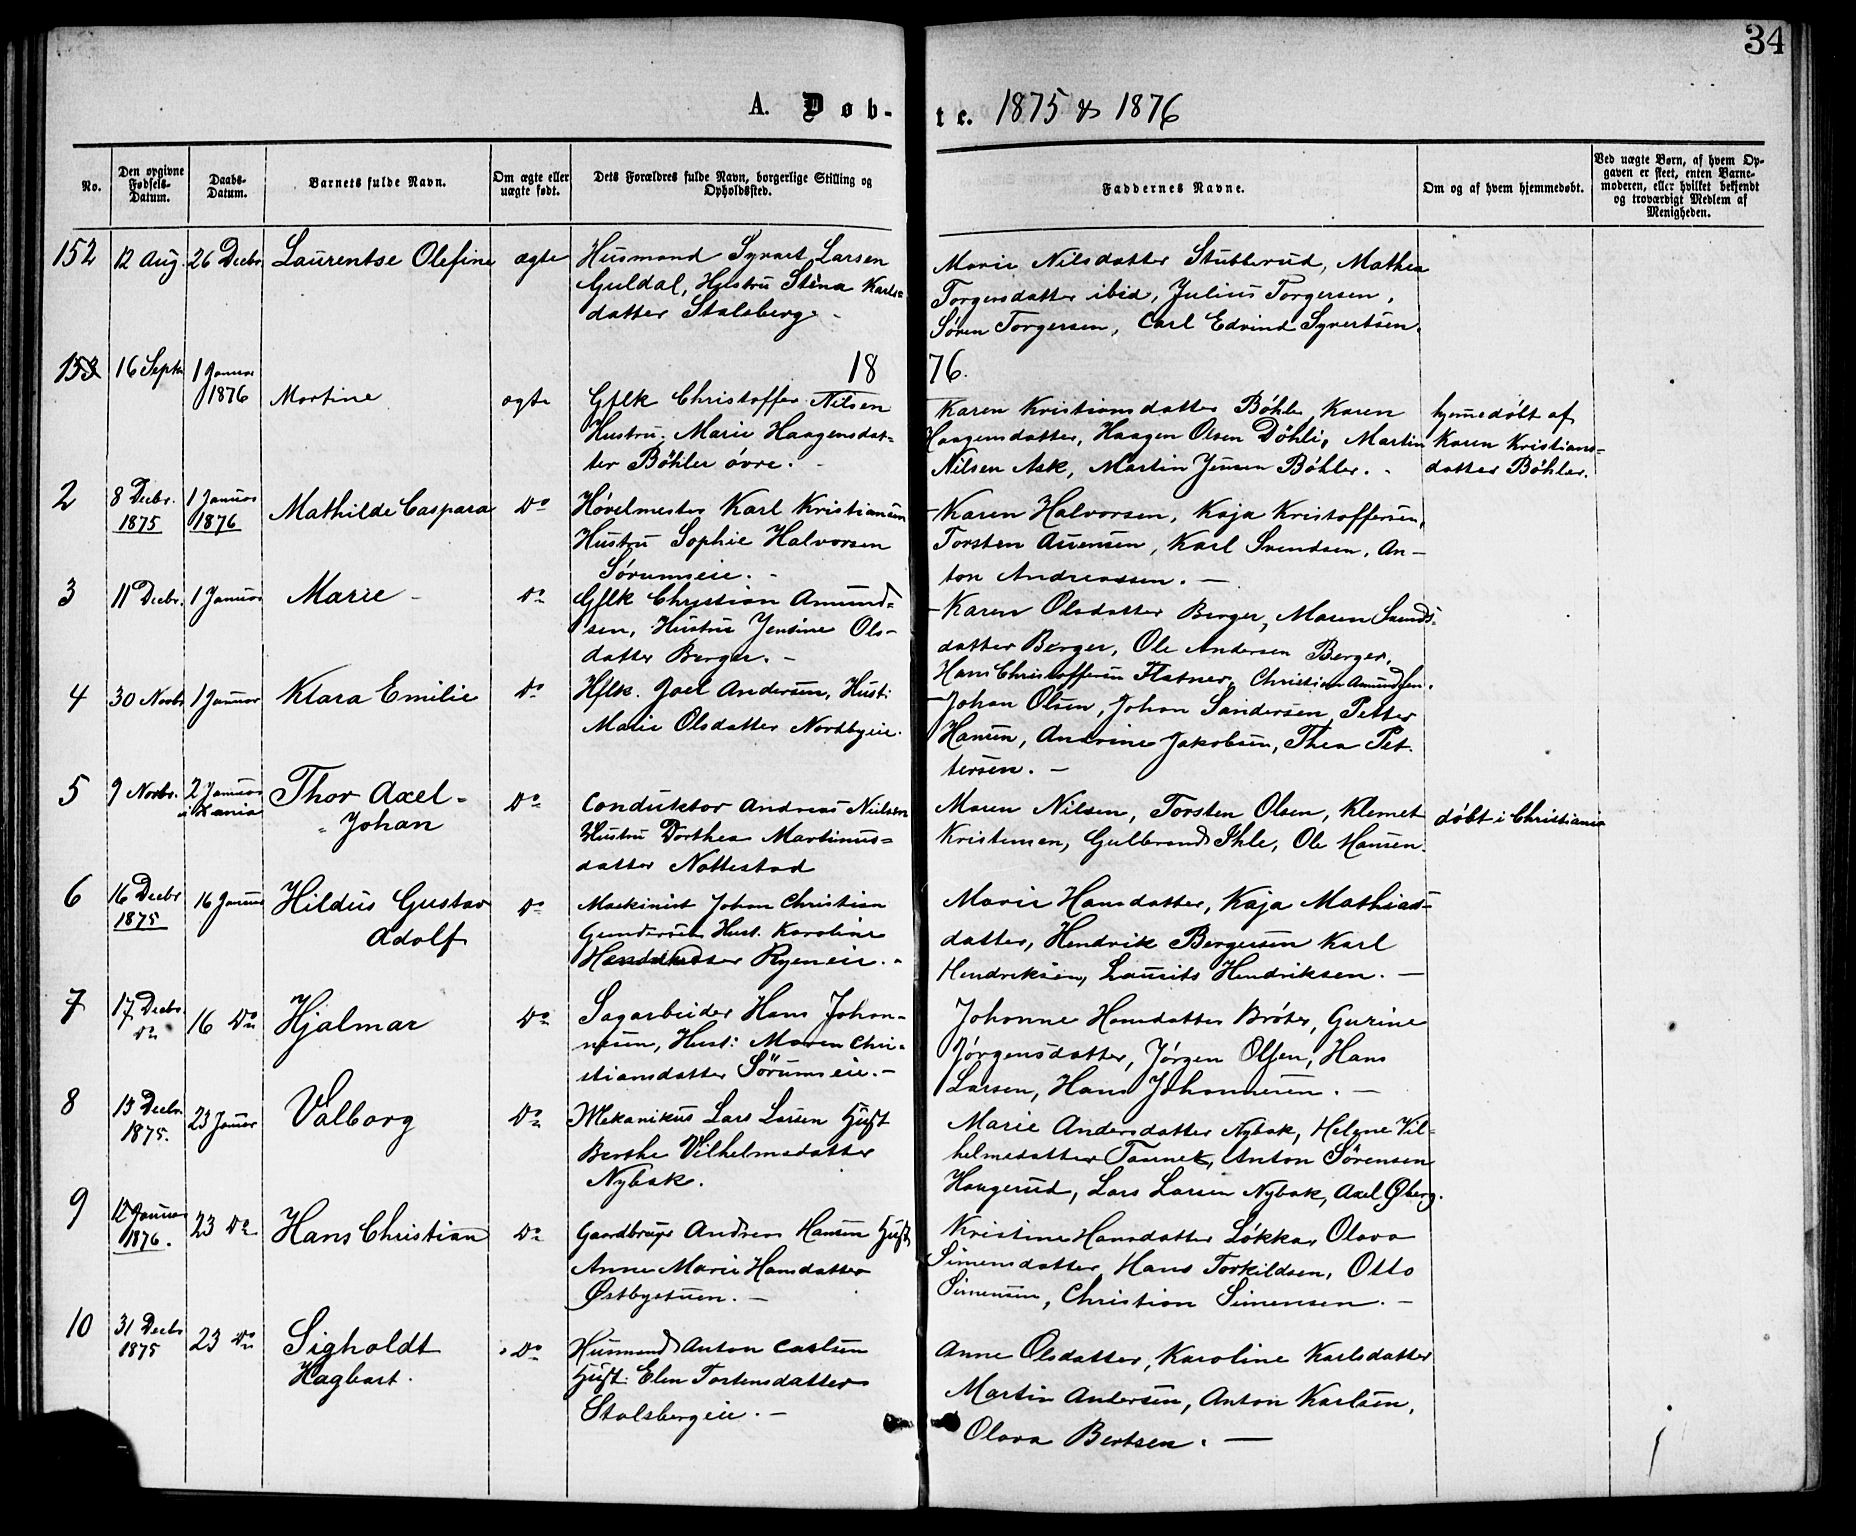 34
A. Døb-te. 1875 & 1876
No.
Den opgivne Fødsels-Datum.
Daabs-Datum.
Barnets fulde Navn.
Om ægte eller uægte født.
Dets Forældres fulde Navn, borgerlige Stilling og Opholdssted.
Faddernes Navne.
Om og af hvem hjemmedøbt.
Ved uægte Børn, af hvem Opgaven er skeet, enten Barnemoderen, eller hvilket bekjendt og troværdigt Medlem af Menigheden.
152 12 Aug. 26 Decbr. Laurentse Olefine ægte
Husmand Syvart Larsen
Guldal, Hustru Stina Karls=
datter Stalsberg. -
Marie Nilsdatter Stubberud, Mathea
Torgersdatter ibid, Julius Torgersen,
Søren Torgersen, Carl Edvind Syvertsen.
1876.
153 16 Septr 1 Januar 1876 Martine ægte
Gflk Christoffer Nilsen
Hustru Marie Haagensdat-
ter Böhler övre. -
Karen Kristiansdatter Böhler, Karen
Haagensdatter, Haagen Olsen Döhli, Martin
Nilsen Ask, Martin Jensen Böhler. -
hjemedöbt af
Karen Kristians-
datter Böhler.
2 8 Decbr. 1875 1 Januar 1876 Mathilde Caspara Do
Hövelmester Karl Kristiansen
Hustru Sophie Halvorsen
Sörumseie. -
Karen Halvorsen, Kaja Kristoffersen,
Torsten Auensen, Karl Svendsen, An-
ton Andreassen. -
3 11 Decbr. 1 Januar Marie - Do
Gflk Christian Amund=
sen, Hustru Jensine Ols-
datter Berger. -
Karen Olsdatter Berger, Maren Svends-
datter Berger, Ole Andersen Berger,
Hans Christoffersen Flatner, Christian Amundsen.
4 30 Novbr 1 Januar Klara Emilie Do
Hflk. Joel Andersen, Hust:
Marie Olsdatter Nordbyeie.
Johan Olsen, Johan Sandersen, Petter
Hansen, Andrine Jakobsen, Thea Pet-
tersen. -
5 9 Novbr. 2 Januar i Xania Thor Axel-
Johan Do
Conduktor Andreas Nielsen
Hustru Dorthea Martinus=
datter Nottestad
Maren Nilsen, Torsten Olsen, Klemet
Kristensen, Gulbrand Ihle, Ole Hansen.
döbt i Christiania
6 16 Decbr 1875 16 Januar Hildus Gustav
Adolf Do
Maskinist Johan Christian
Gundersen Hust. Karoline
Ryeneie. -
Marie Hansdatter, Kaja Mathias-
datter, Hendrik Bergersen Karl
Hendriksen, Laurits Hendriksen. -
7 17 Decbr. Do 16 Do Hjalmar Do
Sagarbeider Hans Johan-
nesen, Hust: Maren Chri-
stiansdatter Sörumseie. -
Johanne Hansdatter Bröter, Gurine
Jörgensdatter, Jörgen Olsen, Hans
Larsen, Hans Johannesen. -
8 13 Decbr. 1875. 23 Januar Valborg Do
Mekanikus Lars Larsen Hust
Berthe Vilhelmsdatter
Nybak.
Marie Andersdatter Nybak, Helene Vil-
helmsdatter Taanek, Anton Sörensen
Haugerud, Lars Larsen Nybak, Axel Øberg.
9 12 Januar 1876. 23 Do Hans Christian Do
Gaardbruger Andreas Hansen Hust.
Anne Marie Hansdatter
Østbystuen. -
Kristine Hansdatter Løkka, Olava
Simensdatter, Hans Torkildsen, Otto
Simensen, Christian Simensen. -
10 31 Decbr 1875 23 Do Sigholdt
Hagbart. Do
Husmand Anton Carlsen
Hust: Elen Torstensdatter
Stalsbergeie. -
Anne Olsdatter, Karoline Karlsdatter
Martin Andersen, Anton Karlsen,
Olava Bertsen. -